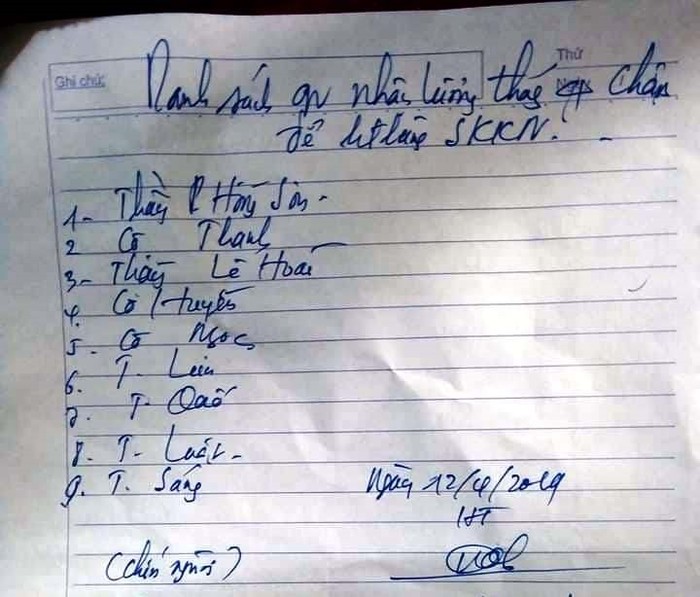 Ghi chú:
Thứ
Danh sách gv nhận lương tháng chậm
để h/t bằng SKKN.
1- Thầy P Hồng Sơn -
2 Cô Thanh
3- Thầy Lê Hoài
4. Cô Huyền
5. Cô Ngọc
6. T. Luân
7. T. Quốc
8. T. Luật -
9. T. Sáng
Ngày 12/4/2019
HT
(chín người)